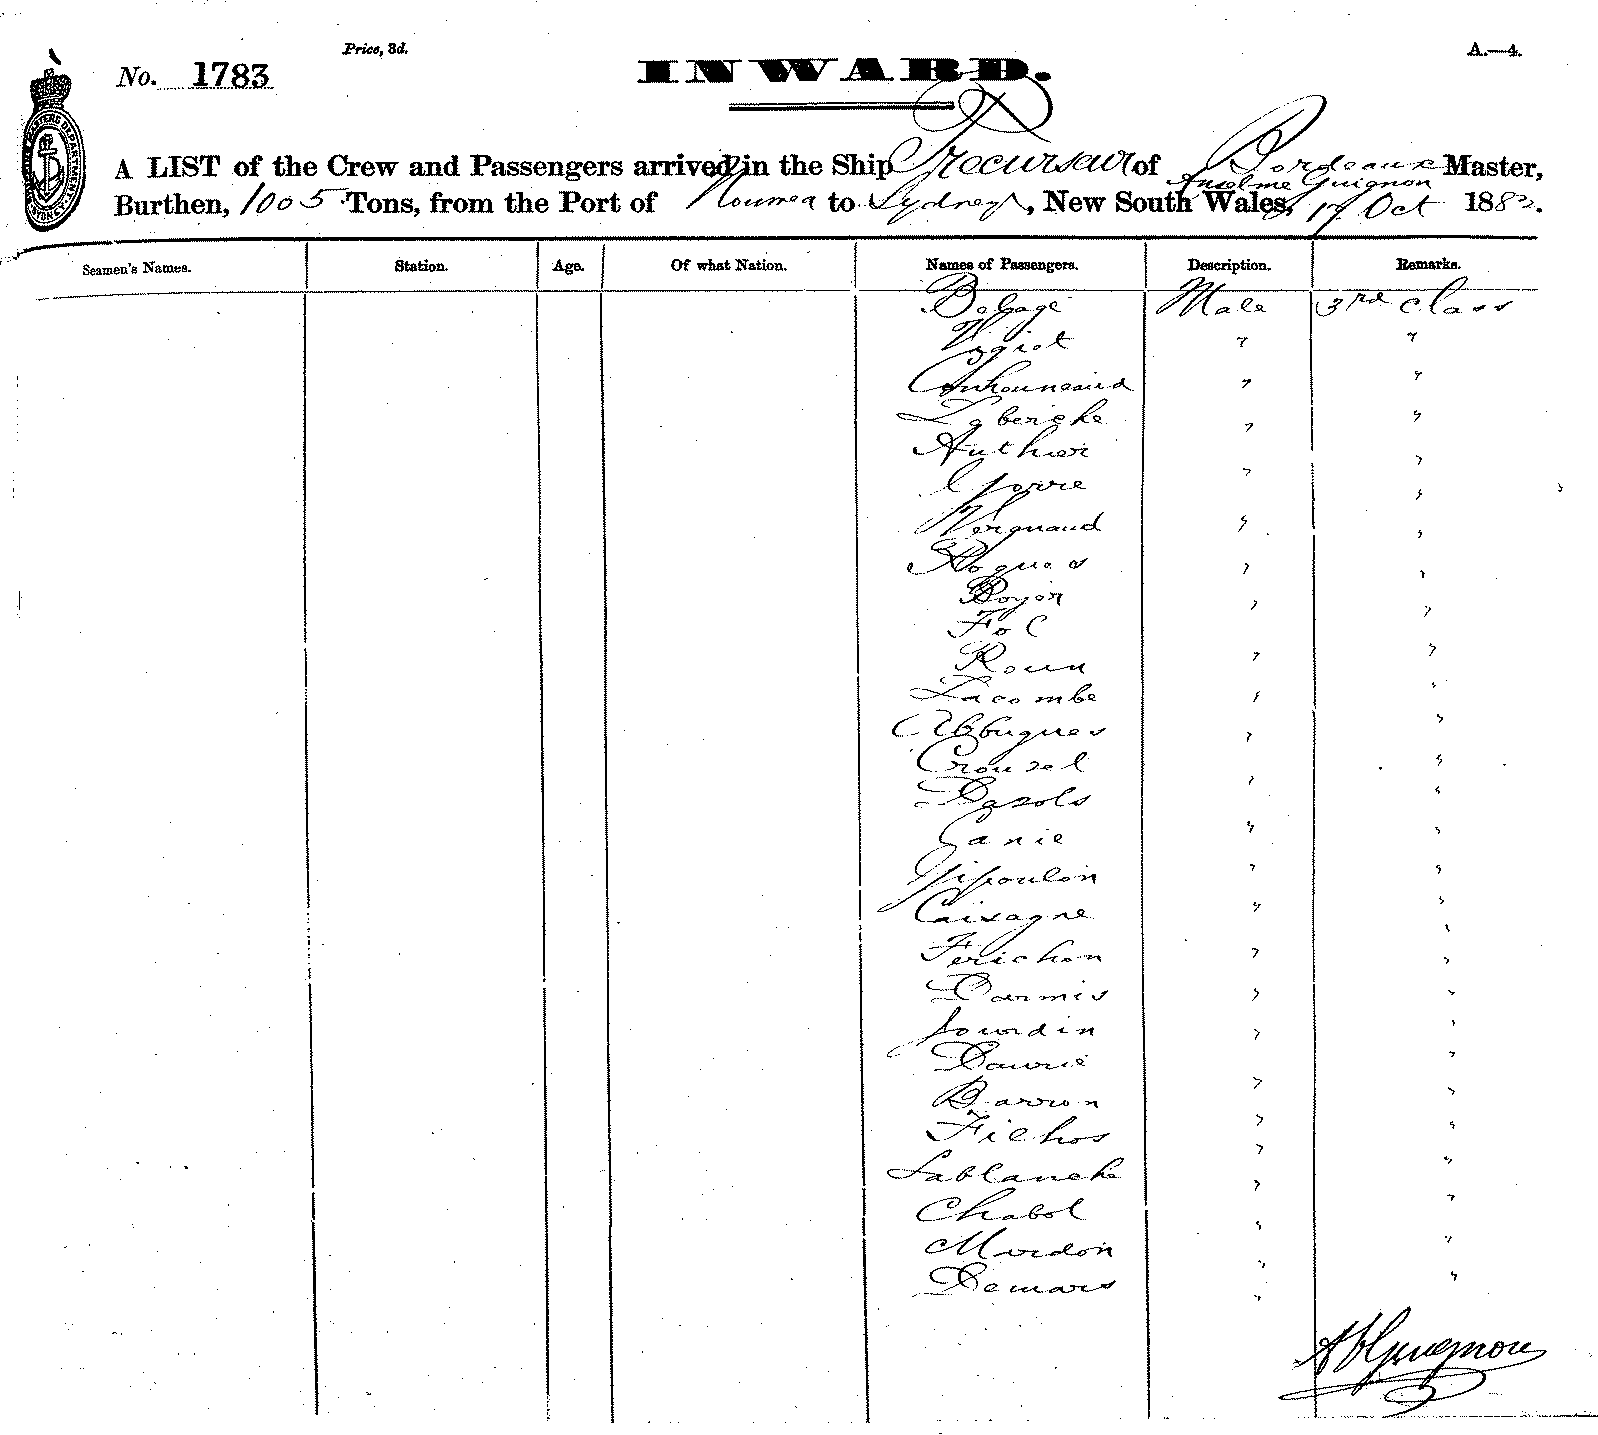 Price, 3d.
A.—4.
No. 1783
INWARD.
A LIST of the Crew and Passengers arrived in the Ship Precurseur of Bordeaux Master,
Anselme Guignon
Burthen, 1005 Tons, from the Port of Noumea to Sydney, New South Wales, 17 Oct 1882.
Seamen's Names. Station. Age. Of what Nation. Names of Passengers. Description. Remarks.
Delage Male 3rd class
Vigiot " "
" "
Laberiche " "
Authier " "
" "
Vergnaud " "
Rogues " "
Boyer " "
Fol " "
Roun " "
Lacombe " "
Albugues " "
Crouzel " "
Dazols " "
Canie " "
Pipoulon " "
Caisagne " "
Ferichon " "
Darmis " "
Jourdin " "
Daurie " "
Barron " "
Filhos " "
Lablanche " "
Chabol " "
Murdon " "
Demars " "
A Guignon